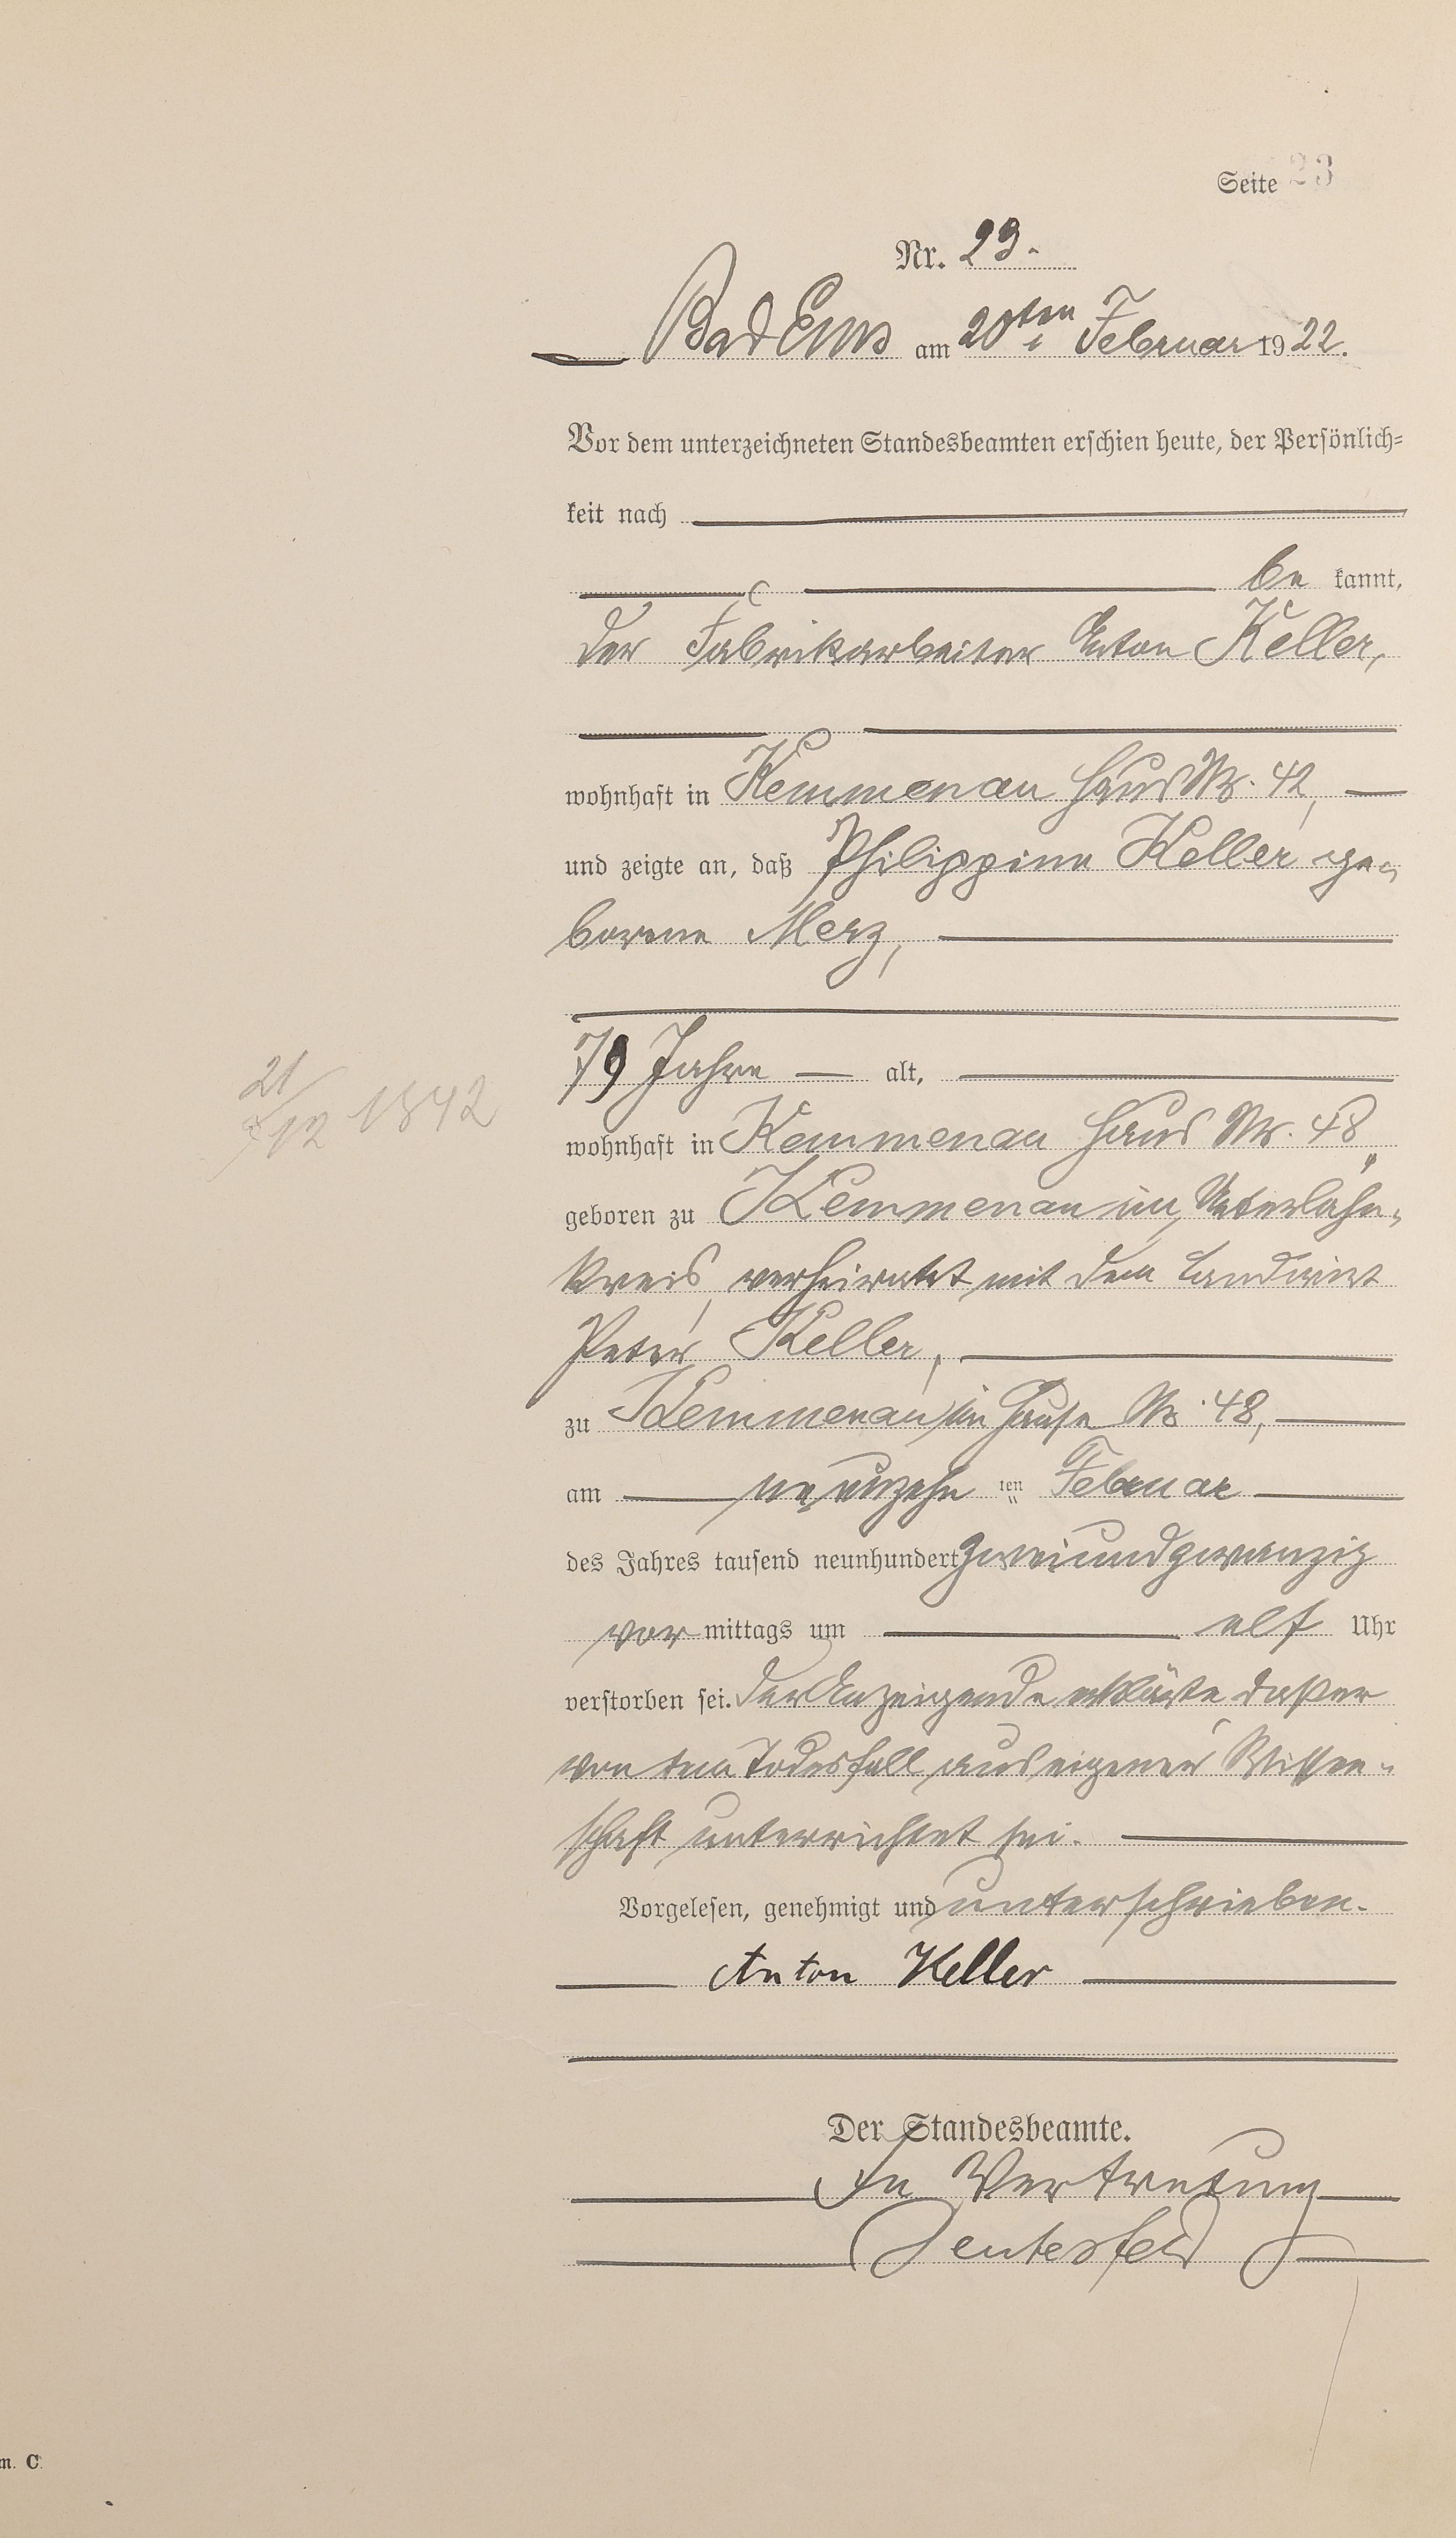 Seite 23
Nr. 23.
Bad Ems am 20ten Februar 1922.
Vor dem unterzeichneten Standesbeamten erschien heute, der Persönlich-
keit nach
be kannt,
der Fabrikarbeiter Anton Keller,
wohnhaft in Kemmenau Haus Nr. 42,
und zeigte an, daß Philippine Keller ge-
borene Merz,
79 Jahre alt,
21/12 1842
wohnhaft in Kemmenau Haus Nr. 48,
geboren zu Kemmenau im Unterlahn-
kreis, verheiratet mit dem Landwirt
Peter Keller,
zu Kemmenau im Hause Nr. 48,
am neunzehnten Februar
des Jahres tausend neunhundert zweiundzwanzig
vor mittags um elf Uhr
verstorben sei. Der Anzeigende erklärte daß er
von dem Todesfall aus eigener Wissen-
schaft unterrichtet sei.
Vorgelesen, genehmigt und unterschrieben.
Anton Keller
Der Standesbeamte.
In Vertretung
m. C.